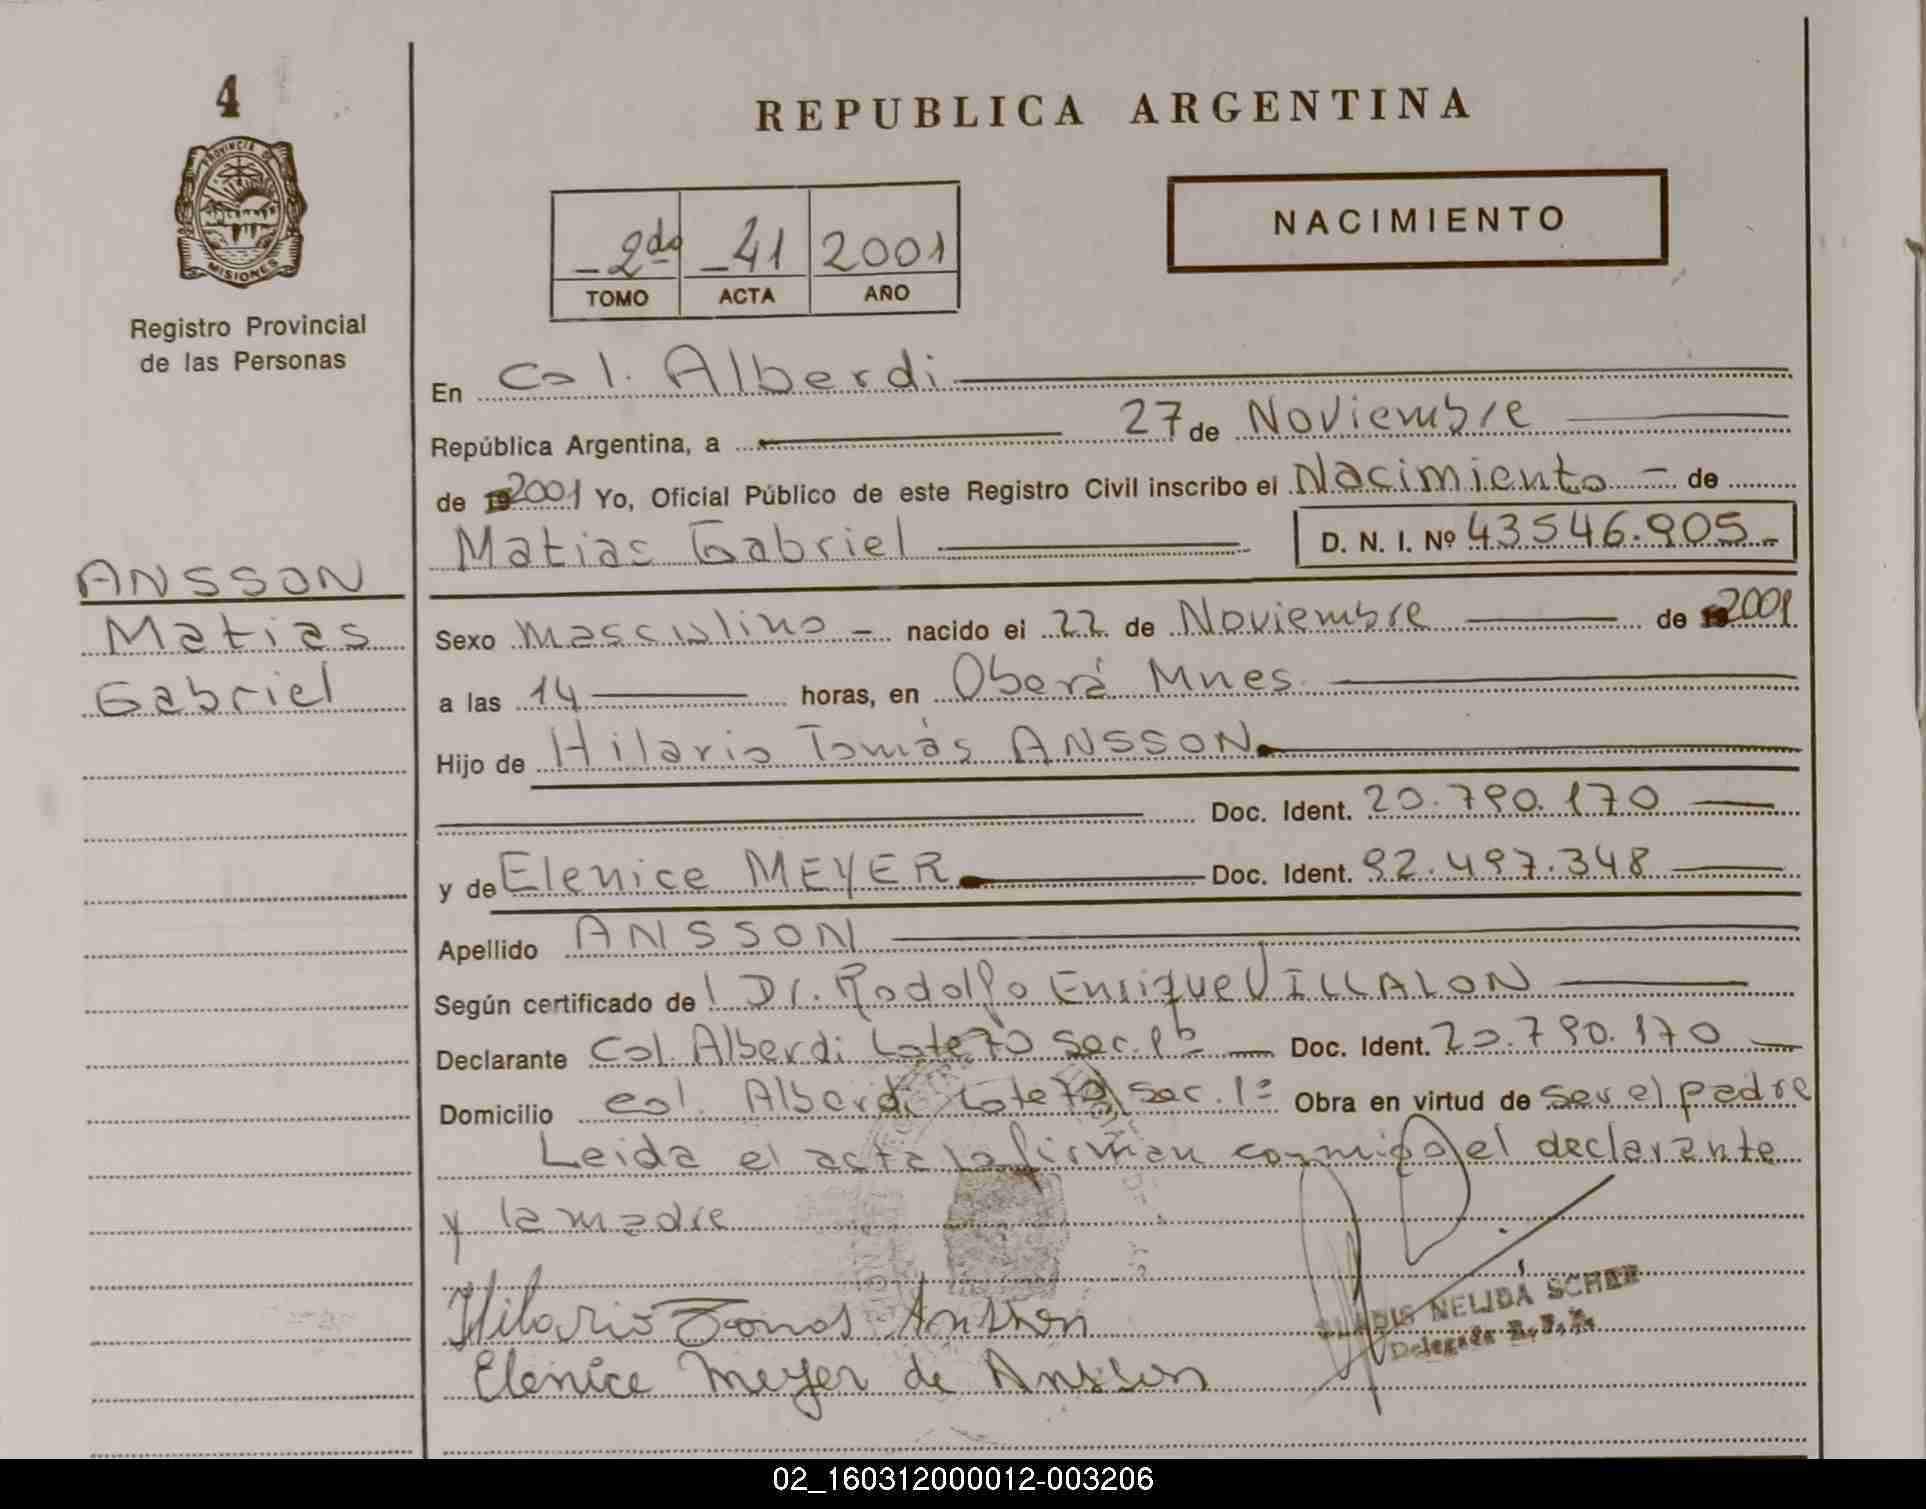 4
REPUBLICA ARGENTINA
PROVINCIA DE
MISIONES
Registro Provincial
de las Personas
2do 41 2001
TOMO ACTA AÑO
NACIMIENTO
En Col. Alberdi
República Argentina, a 27 de Noviembre
de 2001 Yo, Oficial Público de este Registro Civil inscribo el Nacimiento - de
Matias Gabriel D. N. I. Nº 43546.905-
ANSSON
Matias
Gabriel
Sexo masculino - nacido el 22 de Noviembre de 2001
a las 14 horas, en Oberá Mnes.
Hijo de Hilario Tomás ANSSON
Doc. Ident. 20.790.170
y de Elenice MEYER Doc. Ident. 92.497.348
Apellido ANSSON
Según certificado de l Dr. Rodolfo Enrique VILLALON
Declarante Col. Alberdi Lote 70 Sec. 1º Doc. Ident. 20.790.170
Domicilio col. Alberdi Lote 70 sec. 1º Obra en virtud de ser el padre
Leida el acta la firman conmigo el declarante
y la madre
Hilario Tomas Ansson
Elenice Meyer de Ansson
NELIDA
Delegada
02_160312000012-003206